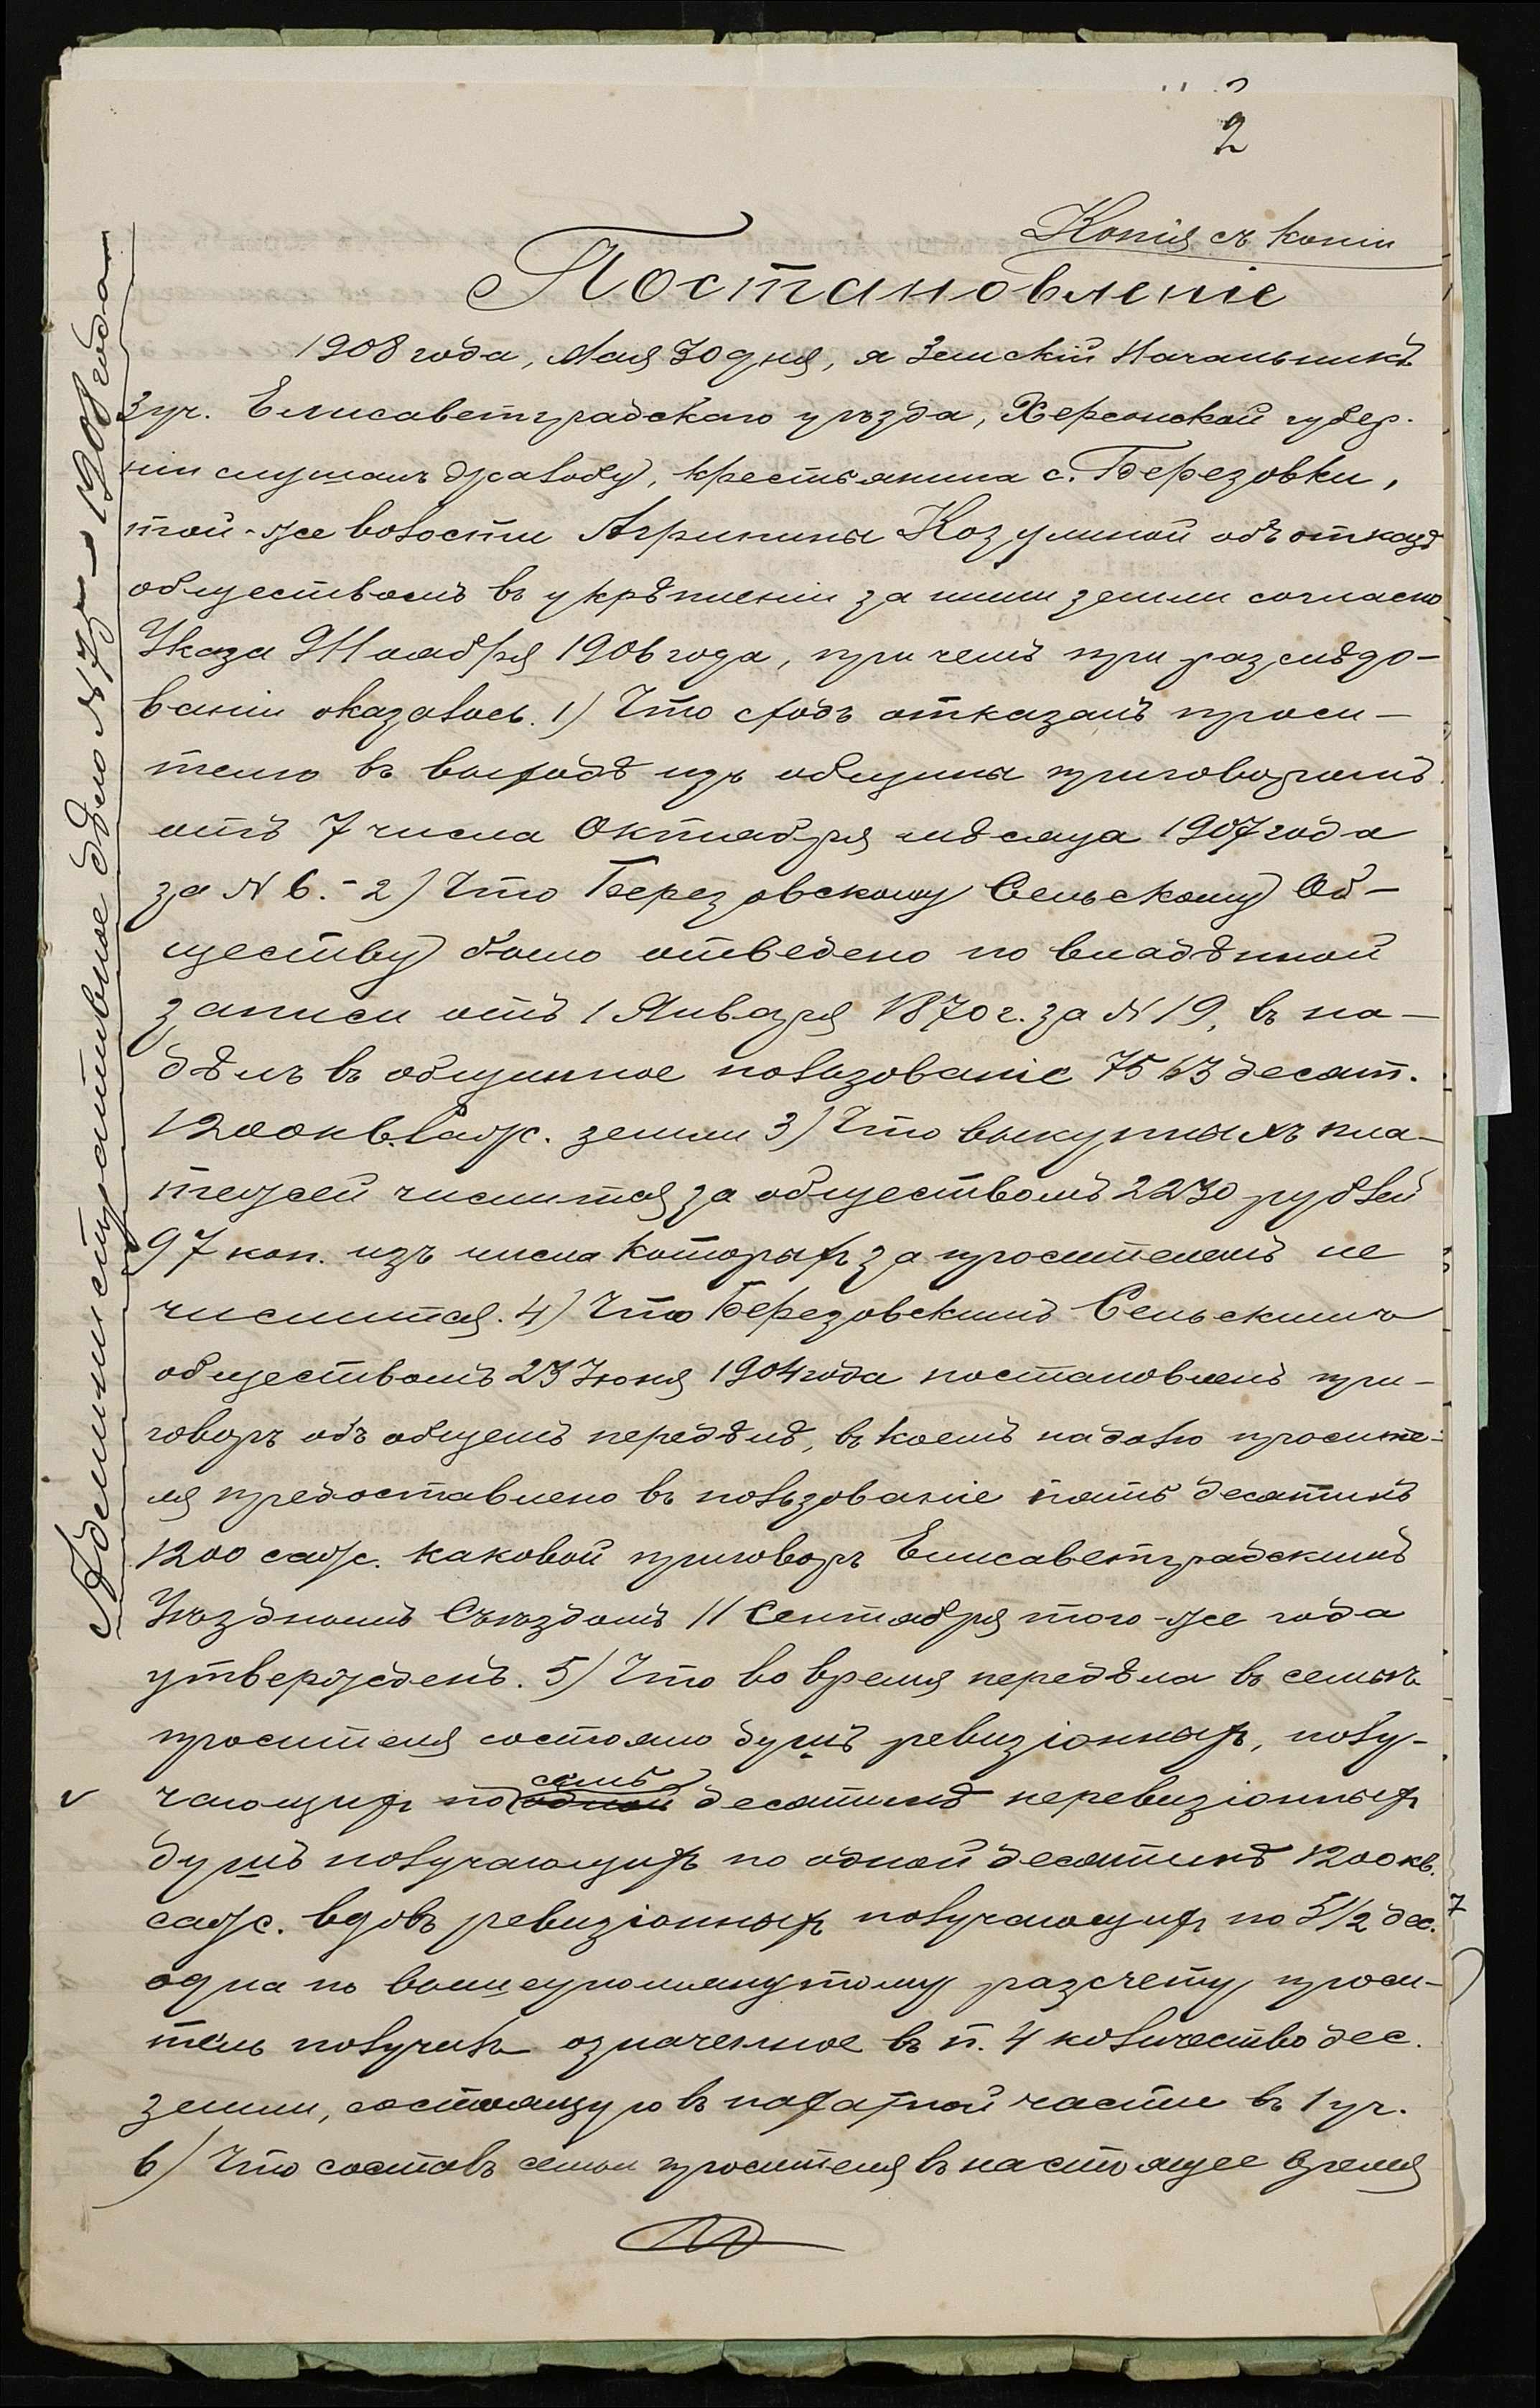 2
Копія съ копіи
Постановленіе
1908 года, Мая 30 дня, я Земскій Начальникъ
3 уч. Елисаветградскаго уѣзда, Херсонской губер-
ніи слушалъ жалобу, крестьянина с. Березовки,
той-же волости Агрипины Козулиной объ отказѣ
обществомъ въ укрѣпленіи за ними земли согласно
Указа 9 Ноября 1906 года, при чемъ при разслѣдо-
ваніи оказалось. 1) Что сходъ отказалъ проси-
телю въ выходѣ изъ общины приговоромъ
отъ 7 числа Октября мѣсяца 1907 года
за N 6.- 2) Что Березовскому Сельскому Об-
ществу было отведено по владѣнной
записи отъ 1 Января 1870 г. за N 19, въ на-
дѣлъ въ общинное пользованіе 7563 десят.
1200 кв. саж. земли 3) Что выкупныхъ пла-
тежей числится за обществомъ 2230 рублей
97 коп. изъ числа которыхъ за просителемъ не
числится. 4) Что Березовскимъ Сельскимъ
обществомъ 23 Іюня 1904 года постановленъ при-
говоръ объ общемъ передѣлѣ, въ коемъ на долю просите-
ля предоставлено въ пользованіе пять десятинъ
1200 саж. каковой приговоръ Елисаветградскимъ
Уѣзднымъ Съѣздомъ 11 Сентября того-же года
утвержденъ. 5) Что во время передѣла въ семьѣ
просителя состояло душъ ревизіонныхъ, полу-
семь
чающихъ по одной десятинѣ неревизіонныхъ
душъ получающихъ по одной десятинѣ 1200 кв.
саж. вдовъ ревизіонныхъ получающихъ по 5 1/2 дес.
одна по вышеупомянутому разсчету проси-
тель получилъ означенное въ п. 4 количество дес.
земли, состоящую въ пахатной части въ 1 уч.
6) Что составъ семьи просителя въ настоящее время
Административное дѣло N 75 - 1908 года